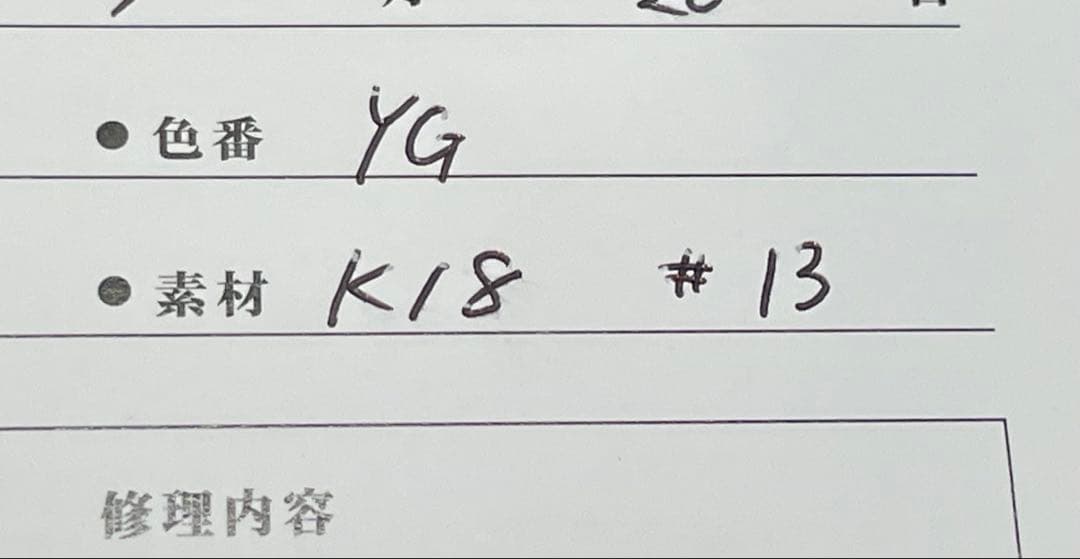 ● 色番 YG
● 素材 K18 #13
修理内容